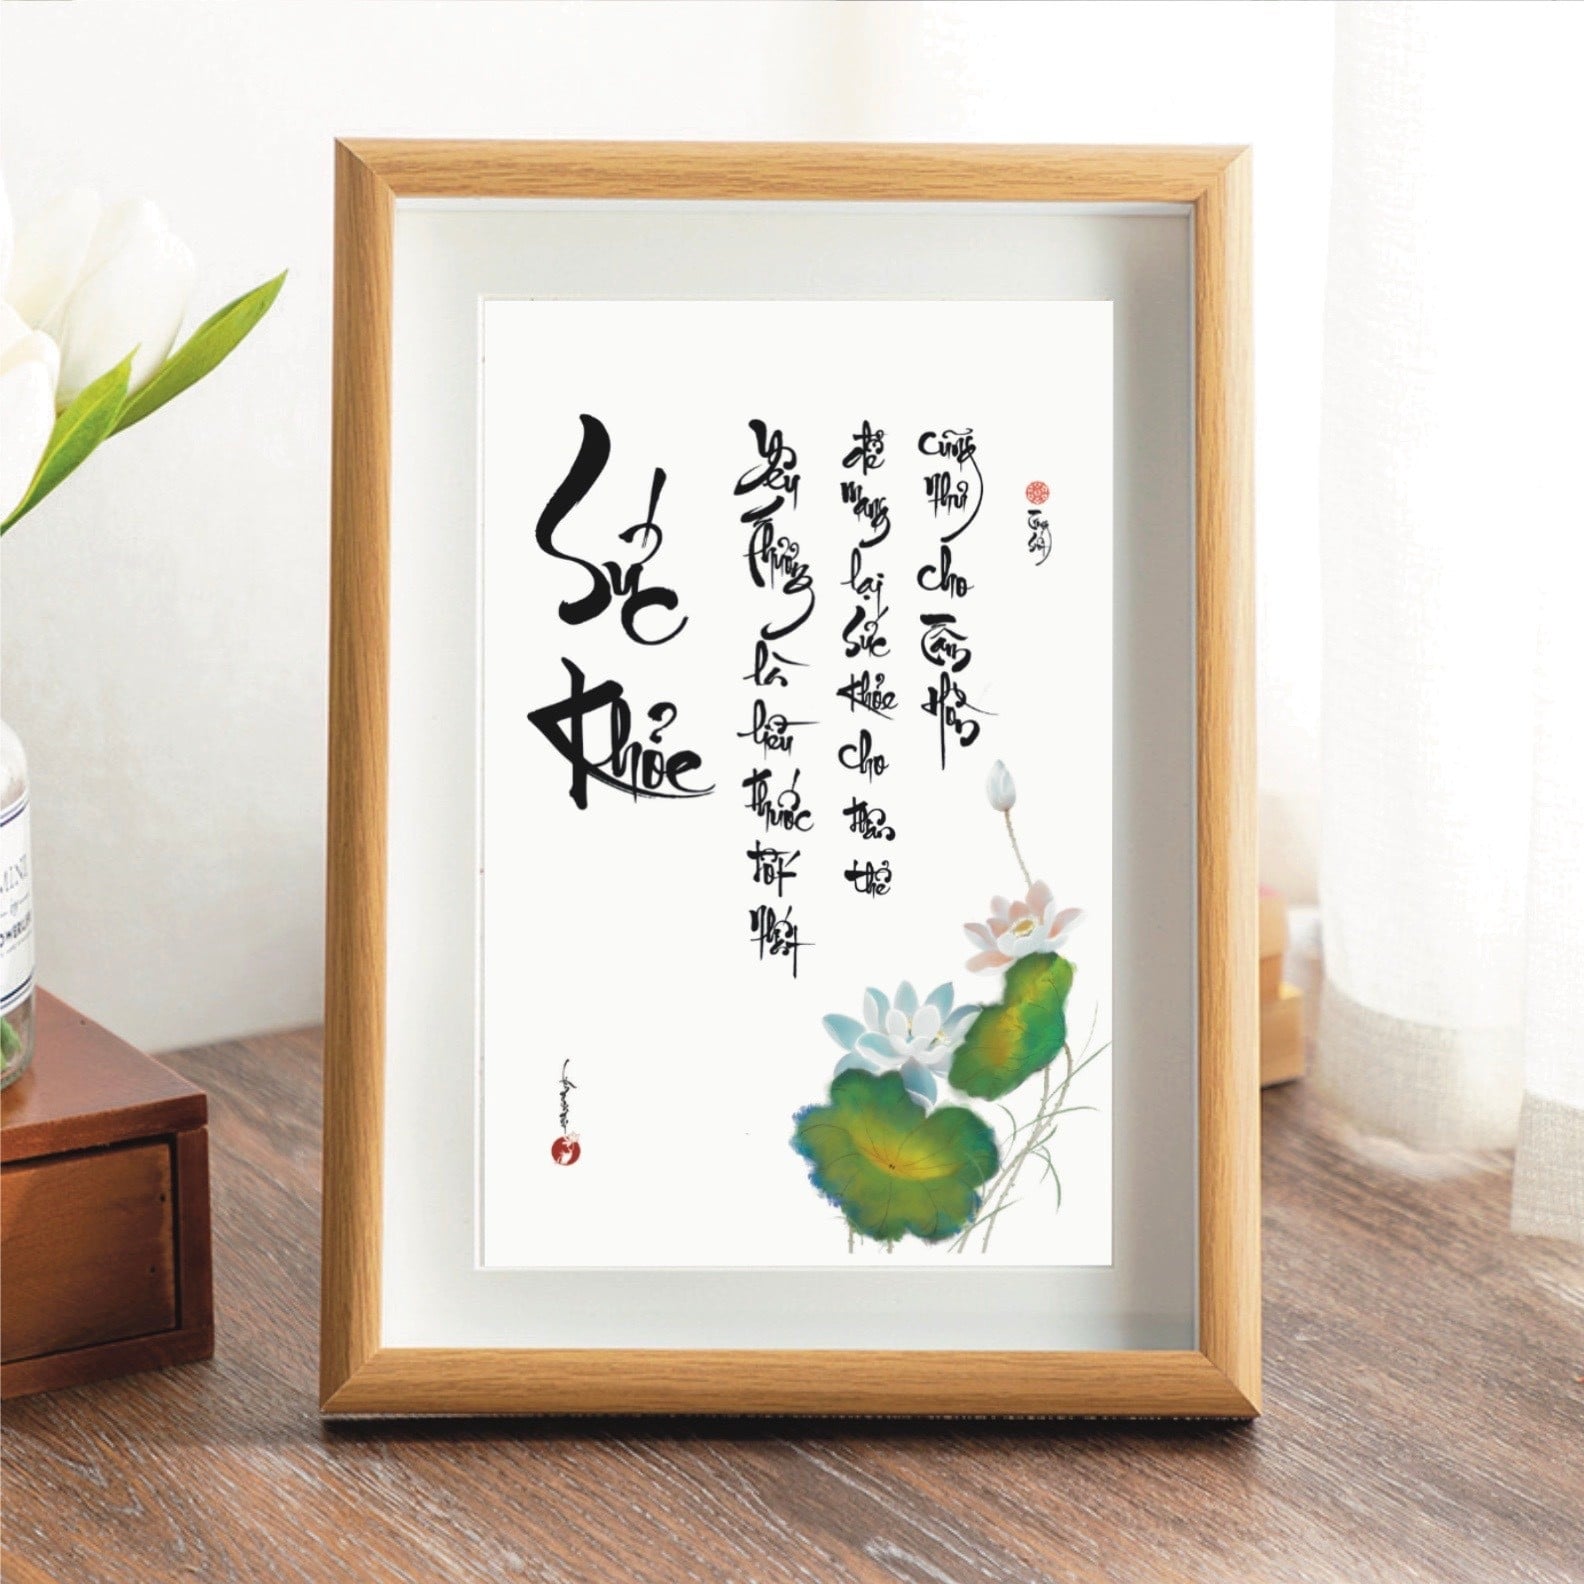 Sức
Khỏe
Yêu Thương là liều thuốc tốt nhất
để mang lại sức khỏe cho thân thể
cũng như cho tâm hồn